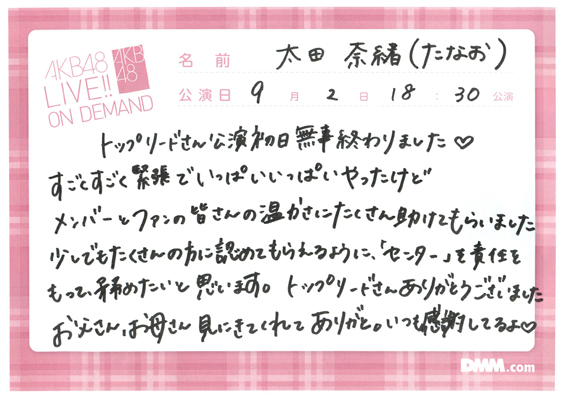 AKB48
LIVE!!
ON DEMAND
AKB
48
名前 太田 奈緒(たなお)
公演日 9月2日 18:30公演
トップリードさん公演初日無事終わりました♡
すごくすごく緊張でいっぱいいっぱいやったけど
メンバーとファンの皆さんの温かさにたくさん助けてもらいました
少しでもたくさんの方に認めてもらえるように、「センター」を責任を
もって、務めたいと思います。トップリードさんありがとうございました
お父さんお母さん見にきてくれてありがと。いつも感謝してるよ♡
DMM.com